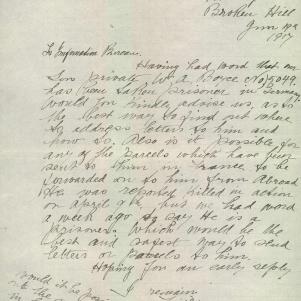 Broken Hill
June 19th
1917
To Information Bureau.
Having had word that our
Son private W. A. Boyce No 5049
has been taken prisoner in Germany
would you kindly advise us, as to
the best way to find out where
to address letters to him and
how so. Also is it possible for
any of the parcels which have been
sent to him in France to be
forwarded on to him from Abroad
He was reported killed in action
on April 9th, but we had word
a week ago to say He is a
prisoner. Which would be the
best and safest way to send
letters or Parcels to him.
Hoping for an early reply
would it be
I remain